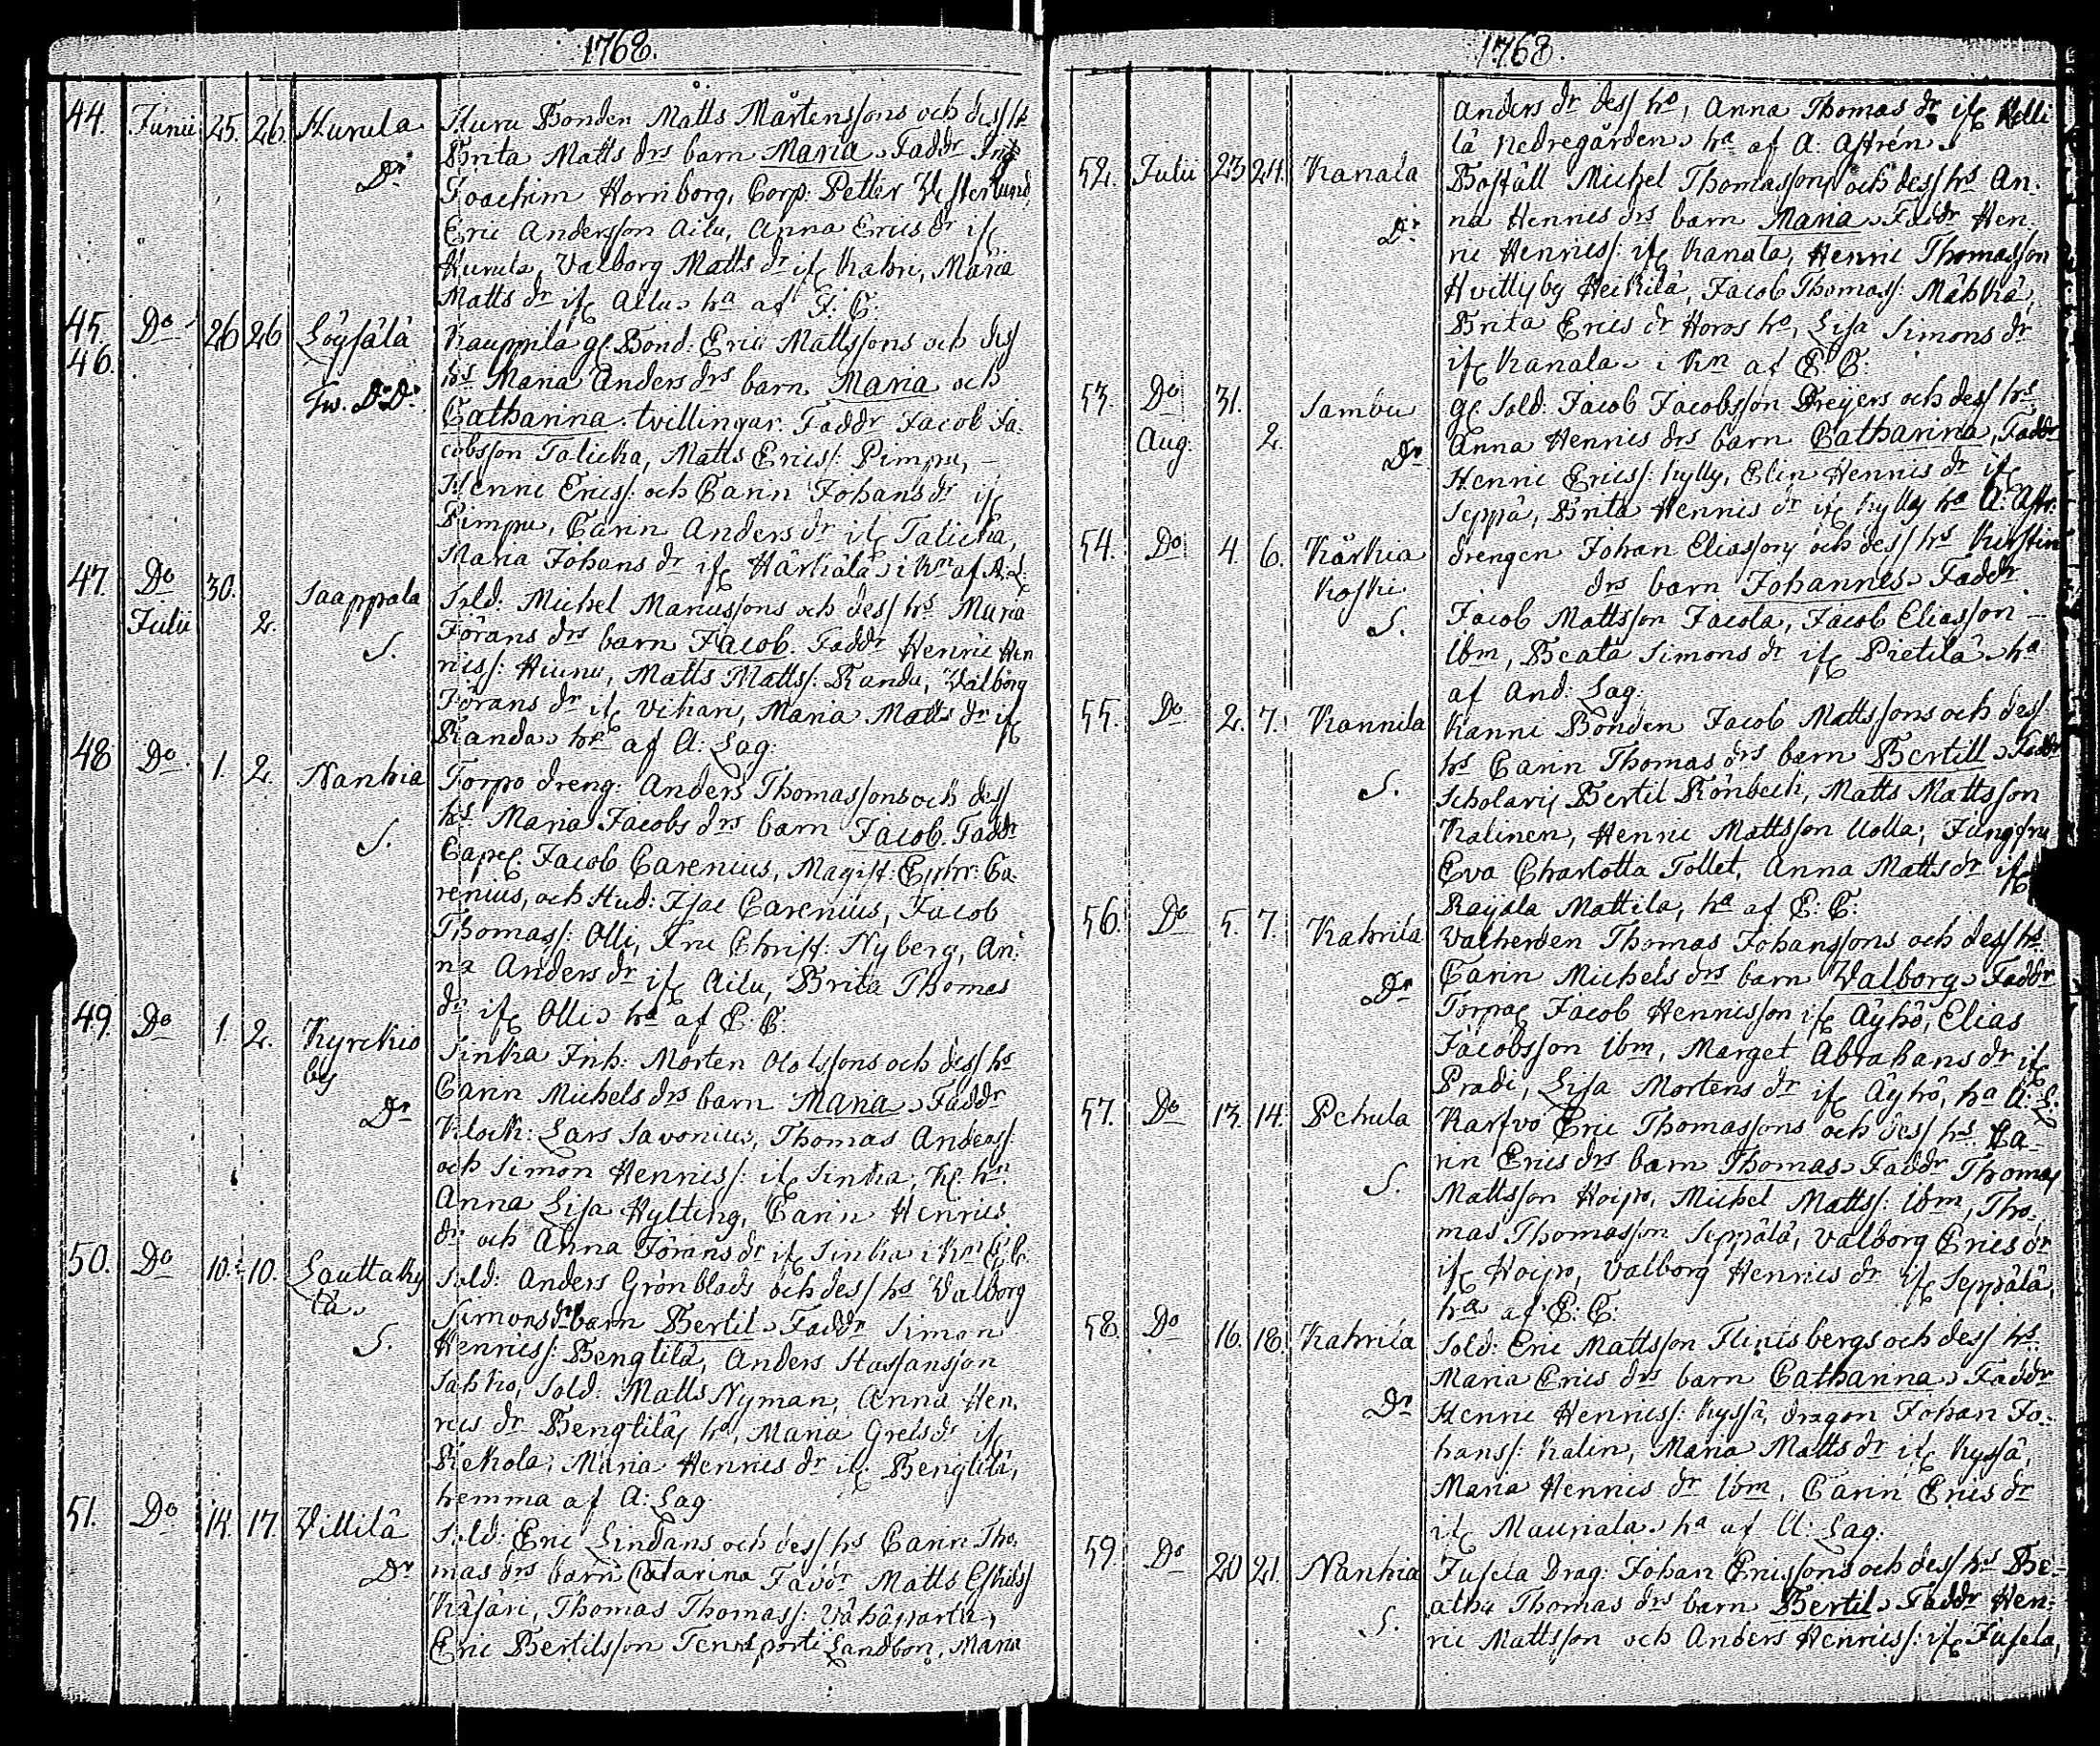 1768.
44. Junii 25. 26. Hurula Huru Bonden Matts Mårtenssons och dess h:
Brita Matts drs barn Maria Faddr
Dr Joachim Hornborg, Corp: Petter Westerlund,
Eric Andersson Ailu, Anna Erics dr if
Hurula, Valborg Matts dr if Kahri, Maria
Matts dr if Ailu, ha af F: C:
45. Do 26 26 Löyfälä Kauppila gl Bond: Eric Mattssons och des
46. hs Maria Anders drs barn Maria och
Tw. Dr Dr. Catharina tvillingar. Faddr Jacob Ja-
cobsson Talicka, Matts Ericss: Pimpu, –
Henric Ericss: och Carin Johans dr if
Pimpu, Carin Anders dr if Talicka,
Maria Johans dr if Härkälä i Kn af A. L.
47. Do 30. Saappala Sold: Michel Mariussons och dess hs Maria
Julii 2. Jörans drs barn Jacob. Faddr Henric Hen
S. ricss: Hiunu, Matts Mattss: Randa, Valborg
Jörans dr if Vikari, Maria Matts dr if
Randa, ha af A: Lag:
48 Do. 1. 2. Nanhia Torpo dreng: Anders Thomassons och dess
hs Maria Jacobs drs barn Jacob. Faddr
S. Capel. Jacob Carenius, Magist: Ephr: Ca
renius, och Stud: Isac Carenius, Jacob
Thomass: Olli, Fru Christ: Nyberg, An:
na Anders dr if Ailu, Brita Thomas
dr if Olli, ha af E: C:
49. Do 1. 2. Kyrckio Sinka Inh: Morten Olofssons och dess hs
by Carin Michels drs barn Maria, Faddr
Dr Klock: Lars Savonius, Thomas Anderss:
och Simon Henricss: if Sinka, Kl: hn
Anna Lisa Hylting, Carin Henrics
dr och Anna Jörans dr if Sinka i Kn E: C.
50. Do 10. 10. Lauttaky Sold: Anders Grönblads och dess hs Valborg
lä Simons drs barn Bertil, Faddr Simon
S. Henricss: Bengtilä, Anders Staffansson
Sahko, Sold: Matts Nyman, Anna Hen,
rics dr Bengtilä, ha, Maria Grels dr if
Rekola, Maria Henrics dr if Bengtilä,
hemma af A: Lag.
51. Do 14. 17. Vittilä Sold: Eric Lindans och dess hs Carin Tho,
Dr mas drs barn Catarina Faddr Matts Eskilss
Käsäri, Thomas Thomass: Vähäparta,
Eric Bertilsson Landbon, Maria
1768.
Anders dr dess ho, Anna Thomas dr if Kelli
lä Nedregården, ha af A: Affrén.
52. Julii 23 24. Kanala Bofäll Michel Thomassons och dess hs An.
na Henrics drs barn Maria. Faddr Hen-
Dr ric Henricss: if Kanala, Henric Thomasson
Hvittisby Heikilä, Jacob Thomass: Mähkä,
Brita Erics dr Horos ho, Lisa Simons dr
if Kanala i Kn af E: C:
53. Do 31. Sambu gl. Sold: Jacob Jacobsson Dreijers och dess hs
Aug. 2. Dr Anna Henrics drs barn Catharina, Faddr
Henric Ericss: Kylly, Elin Henrics dr if
Seppä, Brita Henrics dr if Kylly ha A: Affr:
54. Do 4. 6. Kärkia drengen Johan Eliassons och dess hs Kirstin
Koski drs barn Johannes, Faddr
S. Jacob Mattsson Jacola, Jacob Eliasson –
Ibm, Beata Simons dr if Pietilä, ha
af And: Lag:
55. Do 2. 7. Kannila Kanni Bonden Jacob Mattssons och dess
hs Carin Thomas drs barn Bertill, Faddr
S. Scholaris Bertil Rönbeck, Matts Mattsson
Kalinen, Henric Mattsson Uolla, Jungfru
Eva Charlotta Tollet, Anna Matts dr if
Raijala Mattila, ha af E: C:
56. Do 5. 7. Kahrila Valherden Thomas Johanssons och dess hs
Carin Michels drs barn Valborg, Faddr
Dr Torpal Jacob Henricsson if Äyhö, Elias
Jacobsson Ibm, Marget Abrahams dr if
Pradi, Lisa Mortens dr if Äyhö, ha A: L:
57. Do 13. 14. Pehula Karfvo Eric Thomassons och dess hs Ca-
rin Erics drs barn Thomas, Faddr Thomas
S. Mattsson Hoipo, Michel Mattss: Ibm, Tho-
mas Thomasson Seppälä, Valborg Erics dr
if Hoipo, Valborg Henrics dr if Seppälä,
ha af E: C:
58. Do 16. 18. Kahrila Sold: Eric Mattsson Flinsbergs och dess hs
Maria Erics drs barn Catharina, Faddr
Dr Henric Henricss: Kyssä, dragon Johan Jo-
hanss: Kalin, Maria Matts dr if Kyssä,
Maria Henrics dr Ibm, Carin Erics dr
if Mauriala, ha af A: Lag:
59. Do 20 21. Nanhia Jusela Drag: Johan Ericssons och dess hs Be-
atha Thomas drs barn Bertil, Faddr Hen-
S. ric Mattsson och Anders Henricss: if Jusela,